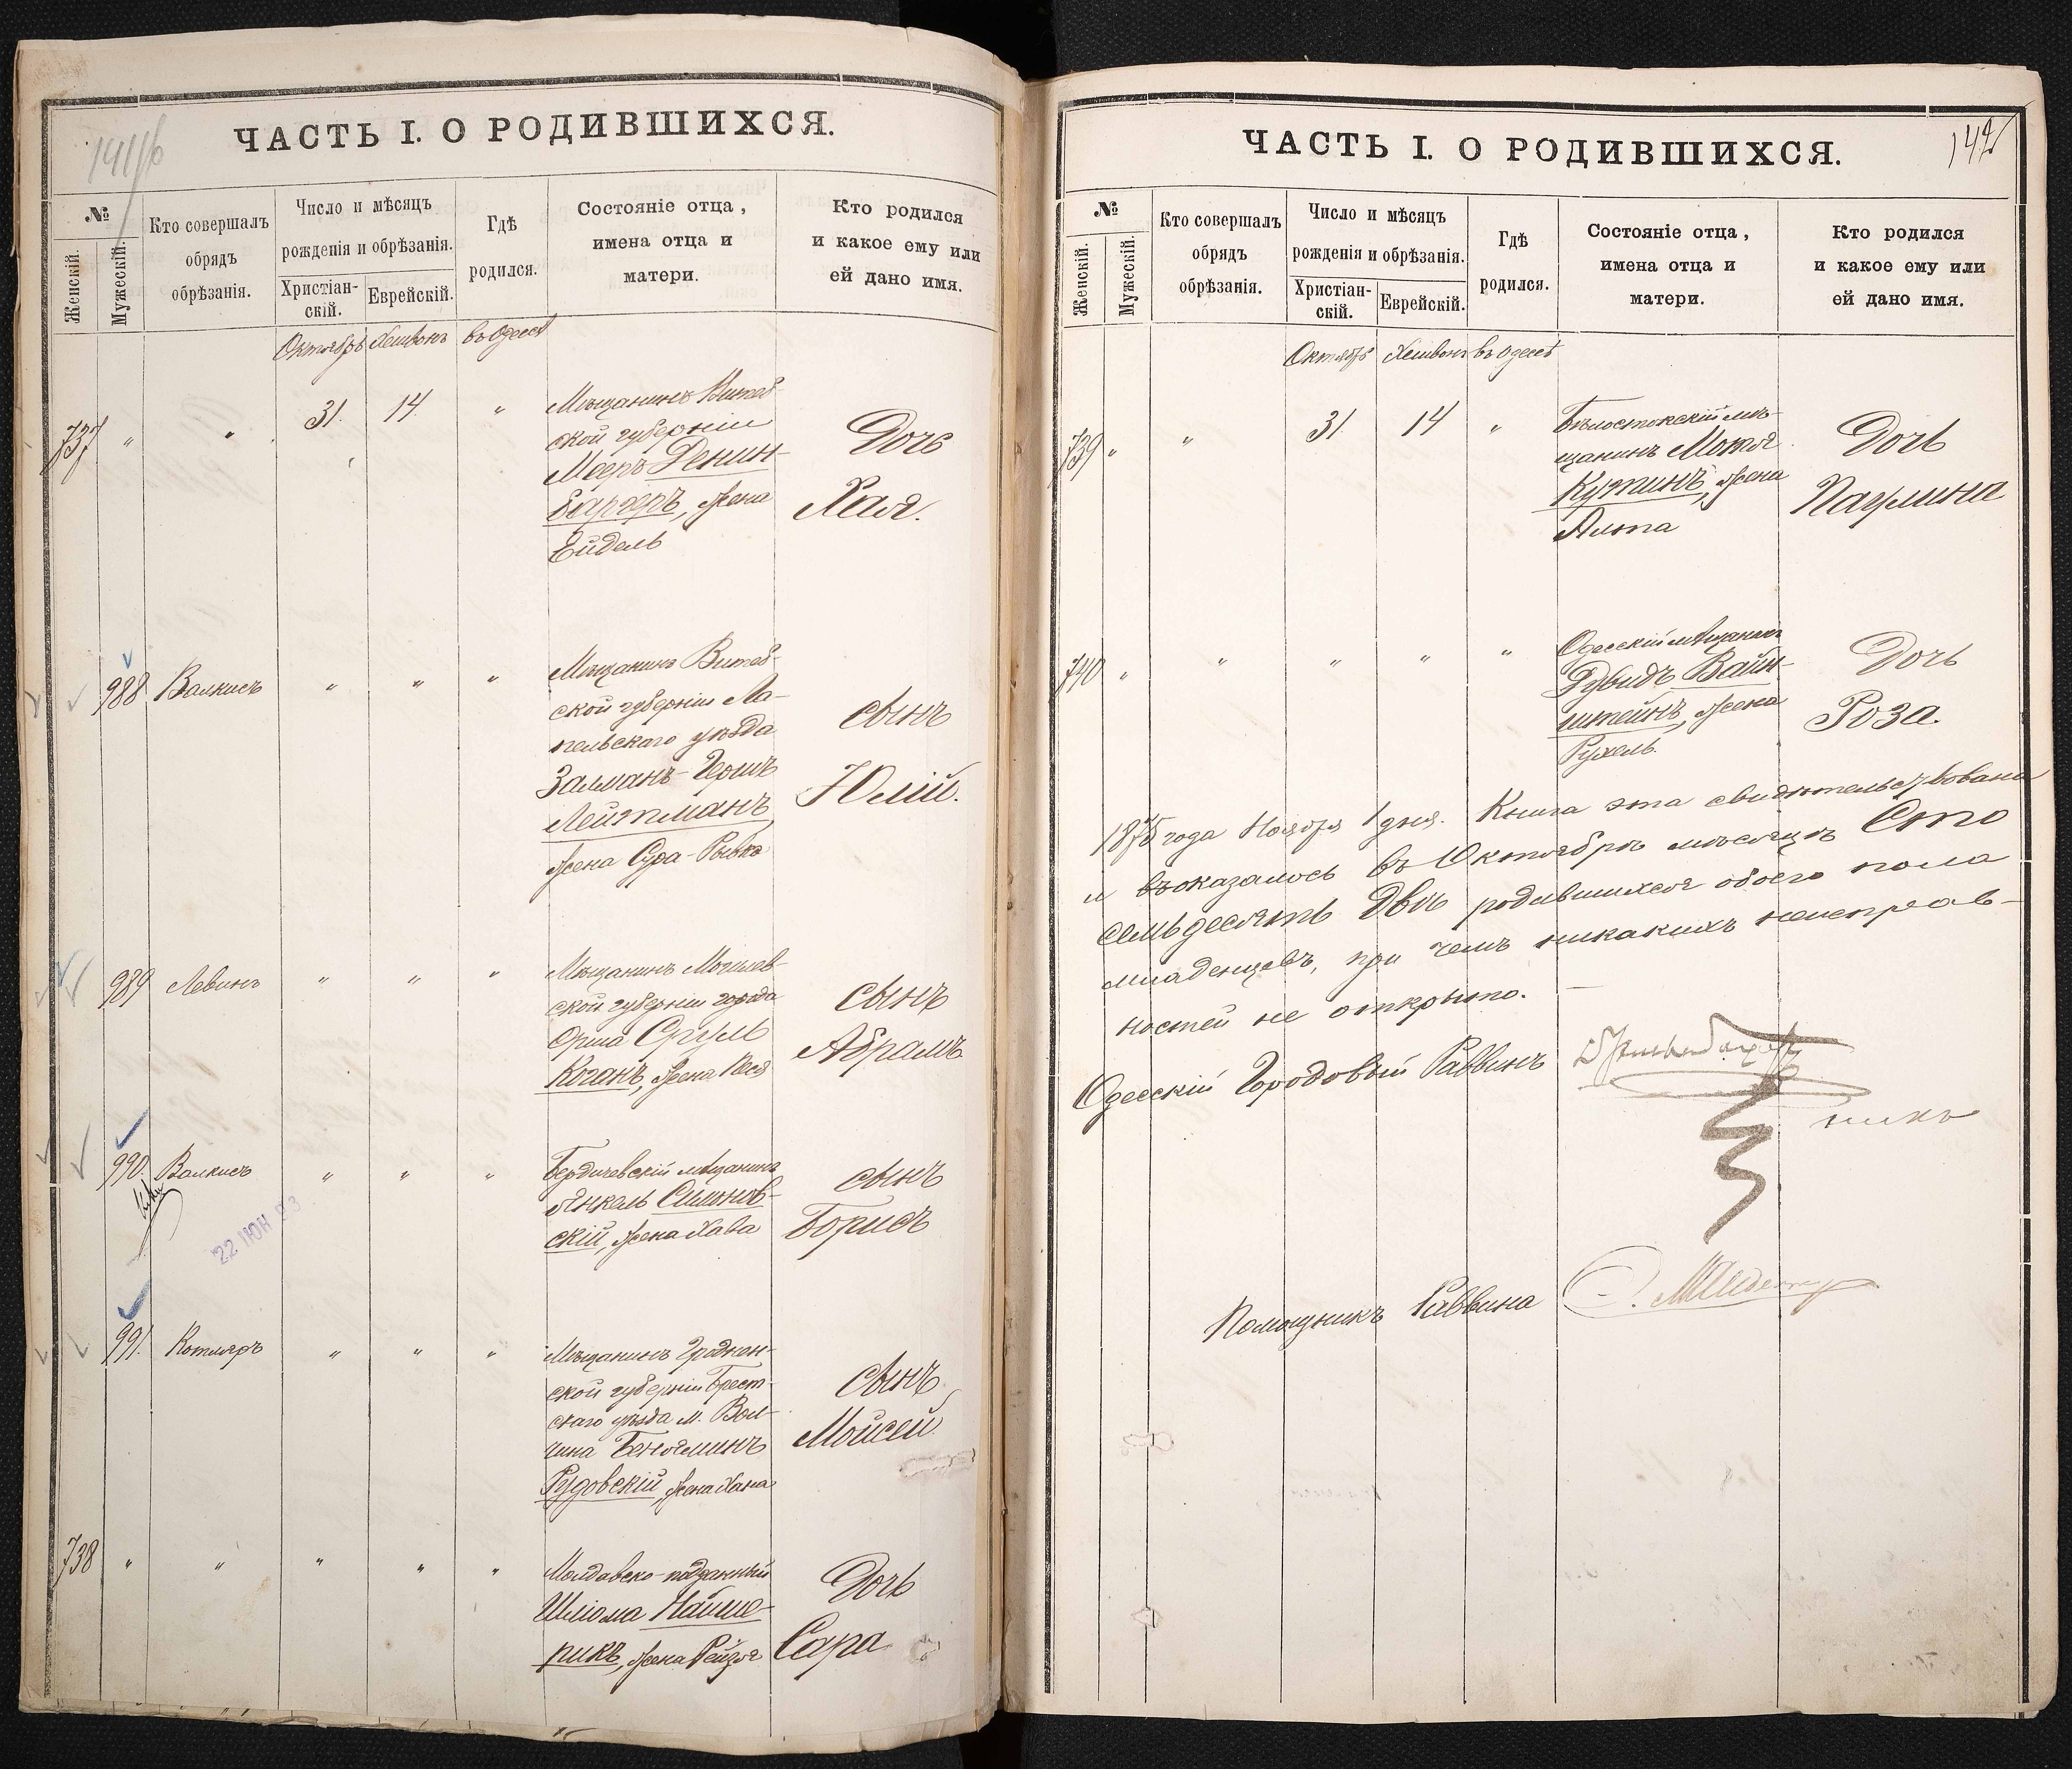 ЧАСТЬ I. О РОДИВШИХСЯ.
№
Женскій.
Мужескій.
Кто совершалъ
обрядъ
обрѣзанія.
Число и мѣсяцъ
рожденія и обрѣзанія.
Христіан-
скій.
Еврейскій.
Гдѣ
родился.
Состояніе отца,
имена отца и
матери.
Кто родился
и какое ему или
ей дано имя.
Октябрь Хешвонъ въ Одессѣ
737 " " 31. 14. "
Мѣщанинъ Витеб-
ской губерніи
Мееръ Денин-
баргеръ, жена
Ейдель
Дочь
Хая.
988 Валкисъ " " "
Мѣщанинъ Витеб-
ской губерніи Ле-
пельскаго уѣзда
Залманъ-Гершъ
Лейтманъ
жена Сура-Рывка
сынъ
Юлій.
989 Левинъ " " "
Мѣщанинъ Могилев-
ской губерніи города
Орша Сруль
Коганъ, жена Песя
сынъ
Абрамъ
990. Валкисъ " " "
22 ІЮН
Бердичевскій мѣщанинъ
Янкель Симонов-
скій, жена Хава
сынъ
Борисъ
991. Котляръ " " "
Мѣщанинъ Гроднен-
ской губерніи Брест-
скаго уѣзда м. Вол-
чина Беньяминъ
Рудовскій, жена Хана
сынъ
Мойсей
738 " " " " "
Молдавско-подданный
Шліома Найше-
рикъ, жена Рейзя
Дочь
Сара
ЧАСТЬ I. О РОДИВШИХСЯ.
142
№
Женскій.
Мужескій.
Кто совершалъ
обрядъ
обрѣзанія.
Число и мѣсяцъ
рожденія и обрѣзанія.
Христіан-
скій.
Еврейскій.
Гдѣ
родился.
Состояніе отца,
имена отца и
матери.
Кто родился
и какое ему или
ей дано имя.
Октябрь Хешвонъ въ Одессѣ
739 " " 31. 14 "
Бѣлостокскій мѣ-
щанинъ Мотя
Кутинъ, жена
Алта
Дочь
Паулина
740 " " " " "
Одесскій мѣщанинъ
Дувидъ Вайн-
штейнъ, жена
Рухель.
Дочь
Роза.
1875 года Ноября 1 дня. Книга эта свидѣтельствована
и въ оказалось въ Октябрѣ мѣсяцѣ Сто
семьдесятъ двѣ родившихся обоего пола
младенцевъ, при чемъ никакихъ неисправ-
ностей не открыто. —
Одесскій Городовый Раввинъ
Помощникъ Раввина